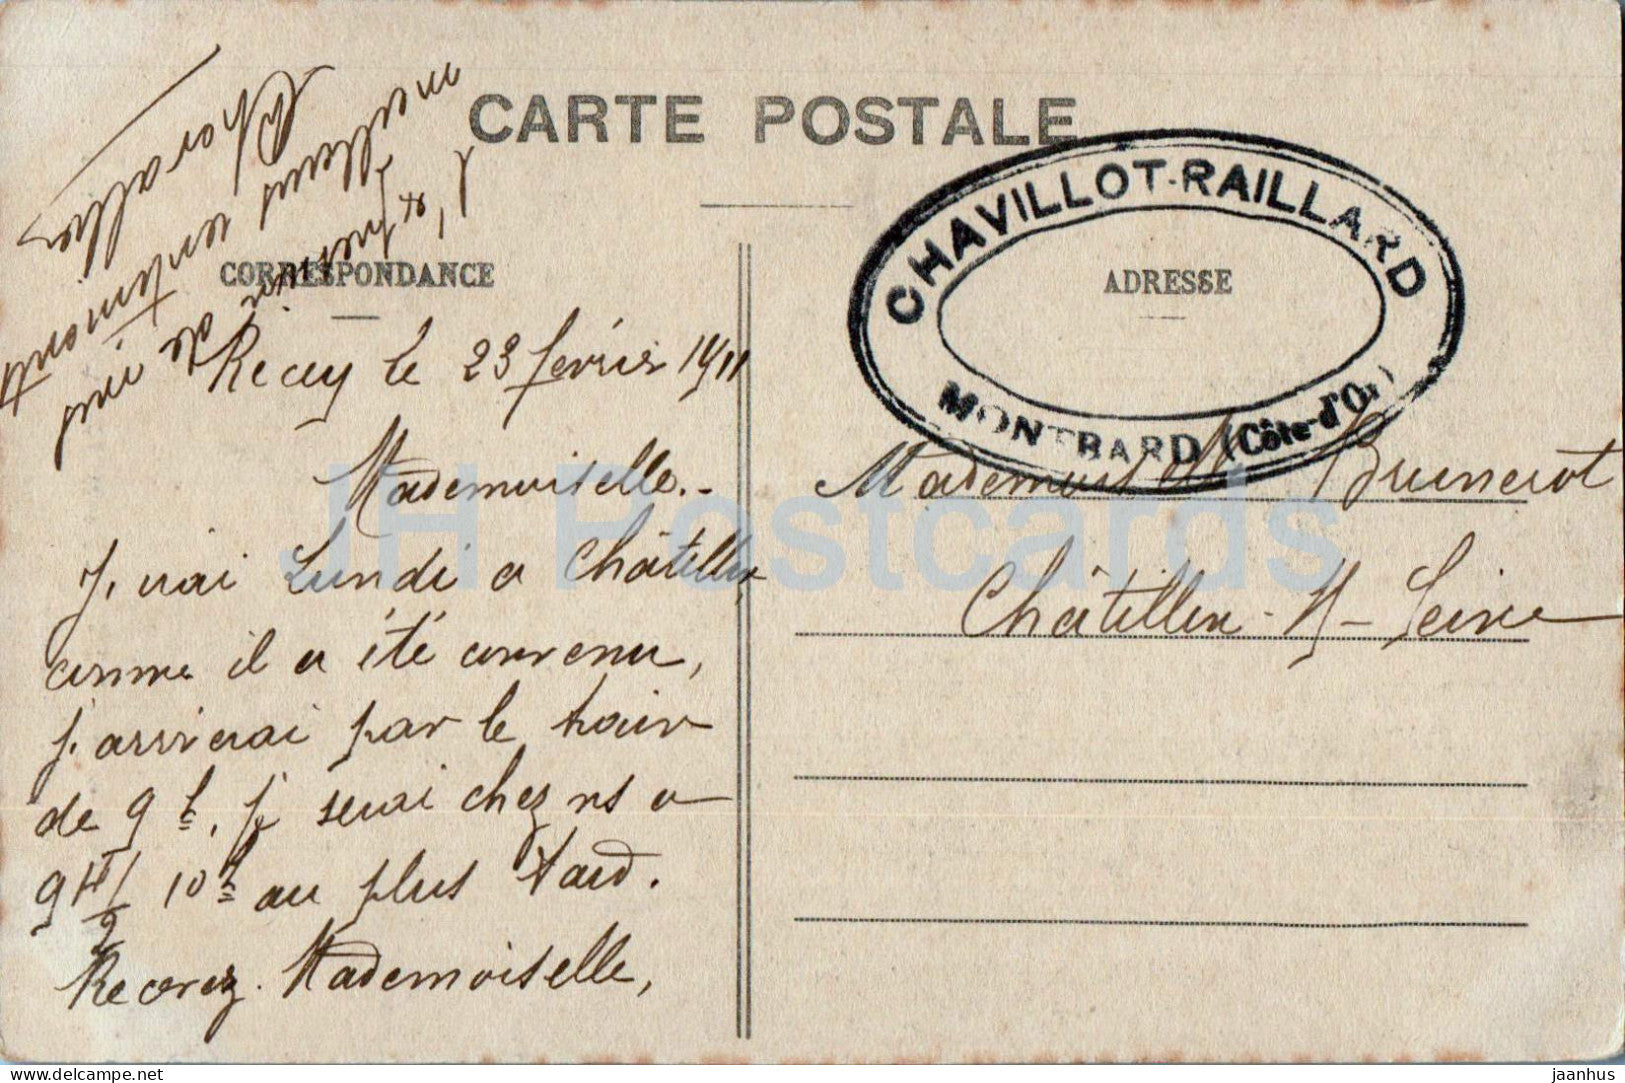 CARTE POSTALE
CORRESPONDANCE
ADRESSE
CHAVILLOT-RAILLARD
MONTBARD (Côte-d'Or)
Recey le 23 février 1911
Mademoiselle.-
J'irai Lundi a Châtillon,
comme il a été convenu,
j'arriverai par le train
de 9 h, je serai chez ns a
9 H 1/2 10 h au plus tard.
Recevez Mademoiselle,
l'
de mes
meilleurs sentiments
Mademoiselle Brunerot
Châtillon-s-Seine
JH Postcards
delcampe.net
jaanhus